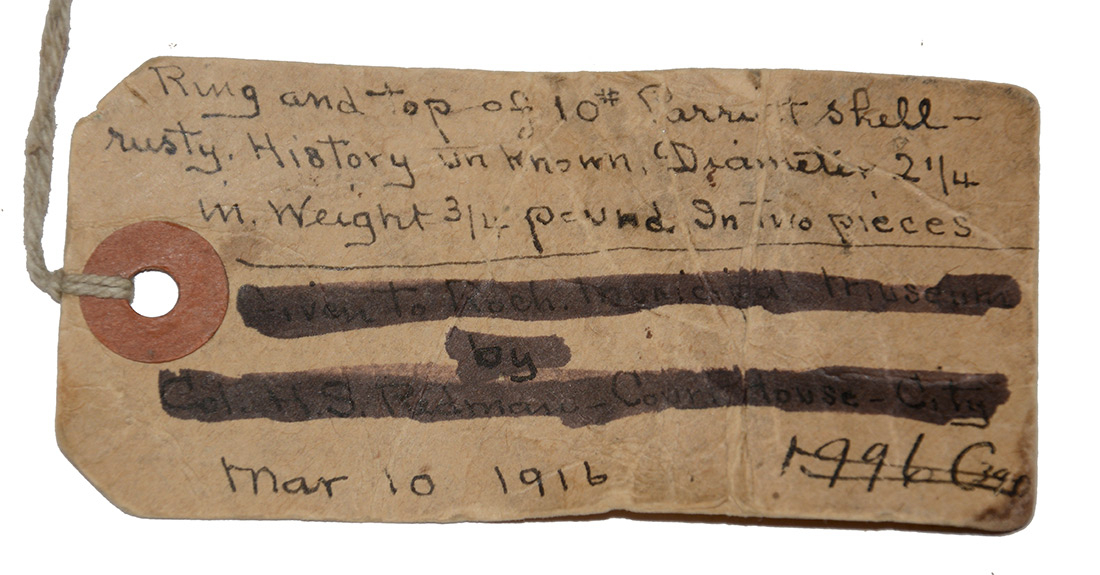 Ring and top of 10# Parrott shell-
rusty. History unknown. Diameter 2 1/4
in. Weight 3/4 pound In two pieces
Given to Roch. Municipal Museum
by
Col. H.S. Redman - Court House - City
Mar 10 1916
1996